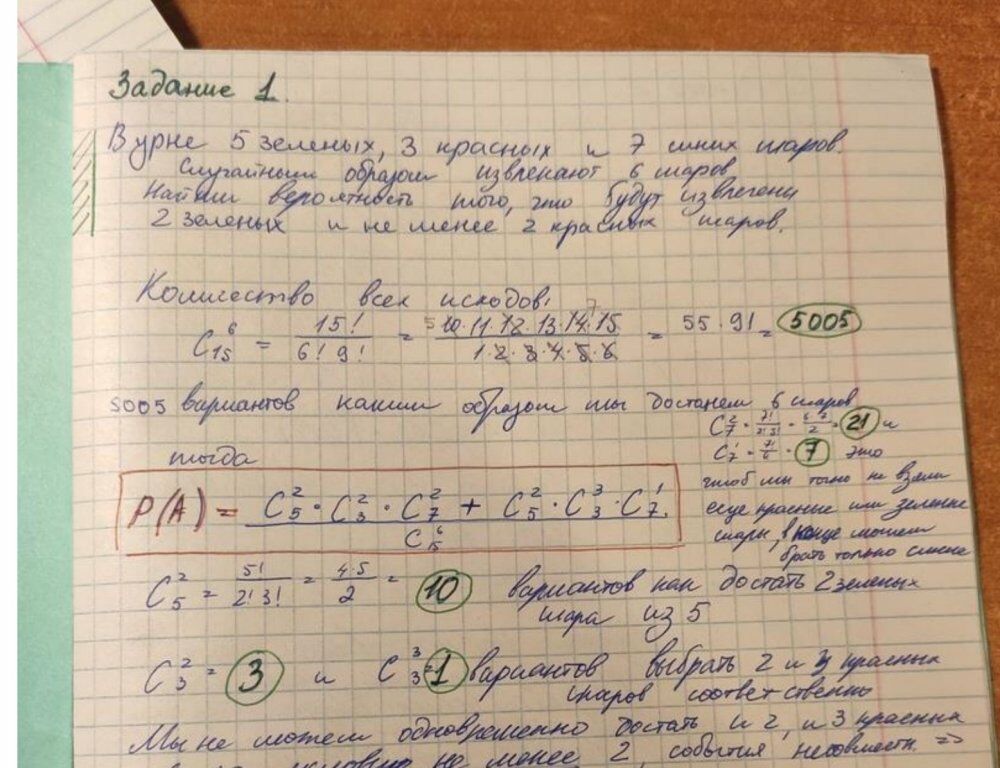 Задание 1.
В урне 5 зеленых, 3 красных и 7 синих шаров.
Случайным образом извлекают 6 шаров
Найти вероятность того, что будут извлечены
2 зеленых и не менее 2 красных шаров.
Количество всех исходов:
C₁₅⁶ = 15! / (6! 9!) = (10·11·12·13·14·15) / (1·2·3·4·5·6) = 55·91 = 5005
5005 вариантов каким образом мы достанем 6 шаров
тогда
C₇² = 7! / = 21 и
C₇¹ = 7! / = 7 это
чтоб мы точно не взяли
еще красные или зеленые
шары, в конце можем
брать только синие
P(A) = (C₅² · C₃² · C₇² + C₅² · C₃³ · C₇¹) / C₁₅⁶
C₅² = 5! / (2! 3!) = 4·5 / 2 = 10 вариантов как достать 2 зеленых
шара из 5
C₃² = 3 и C₃³ = 1 вариантов выбрать 2 и 3 красных
шаров соответственно
Мы не можем одновременно достать и 2, и 3 красных
не менее 2, события несовместн. =>